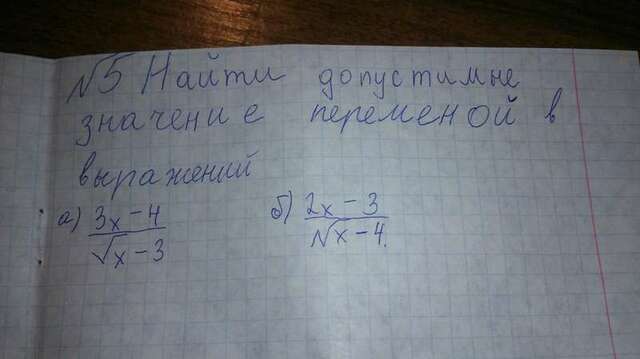 №5 Найти допустимне
значение переменой в
выражений
а) 3x-4 / √x-3 б) 2x-3 / √x-4.